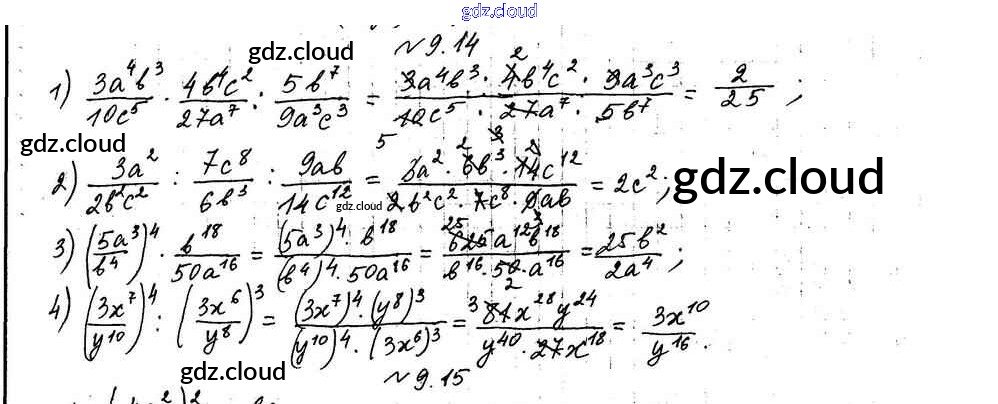 gdz.cloud
gdz.cloud
№ 9.14
gdz.cloud
gdz.cloud
1) 3a⁴b³/10c⁵ · 4b⁴c²/27a⁷ : 5b⁷/9a³c³ = 3a⁴b³ · 4b⁴c² · 9a³c³ / 10c⁵ · 27a⁷ · 5b⁷ = 2/25 ;
gdz.cloud
2) 3a²/2b²c² : 7c⁸/6b³ : 9ab/14c¹² = 3a² · 6b³ · 14c¹² / 2b²c² · 7c⁸ · 9ab = 2c² ;
gdz.cloud
gdz.cloud
3) (5a³/b⁴)⁴ · b¹⁸/50a¹⁶ = (5a³)⁴ · b¹⁸ / (b⁴)⁴ · 50a¹⁶ = 625a¹²b¹⁸ / b¹⁶ · 50 · a¹⁶ = 25b²/2a⁴ ;
4) (3x⁷/y¹⁰)⁴ : (3x⁶/y⁸)³ = (3x⁷)⁴ · (y⁸)³ / (y¹⁰)⁴ · (3x⁶)³ = 81x²⁸y²⁴ / y⁴⁰ · 27x¹⁸ = 3x¹⁰/y¹⁶ .
gdz.cloud
gdz.cloud
№ 9.15